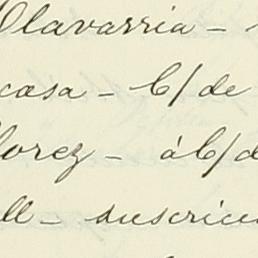 Olavarria -
casa - C/de
lorez - á C/d
ll - suscricu